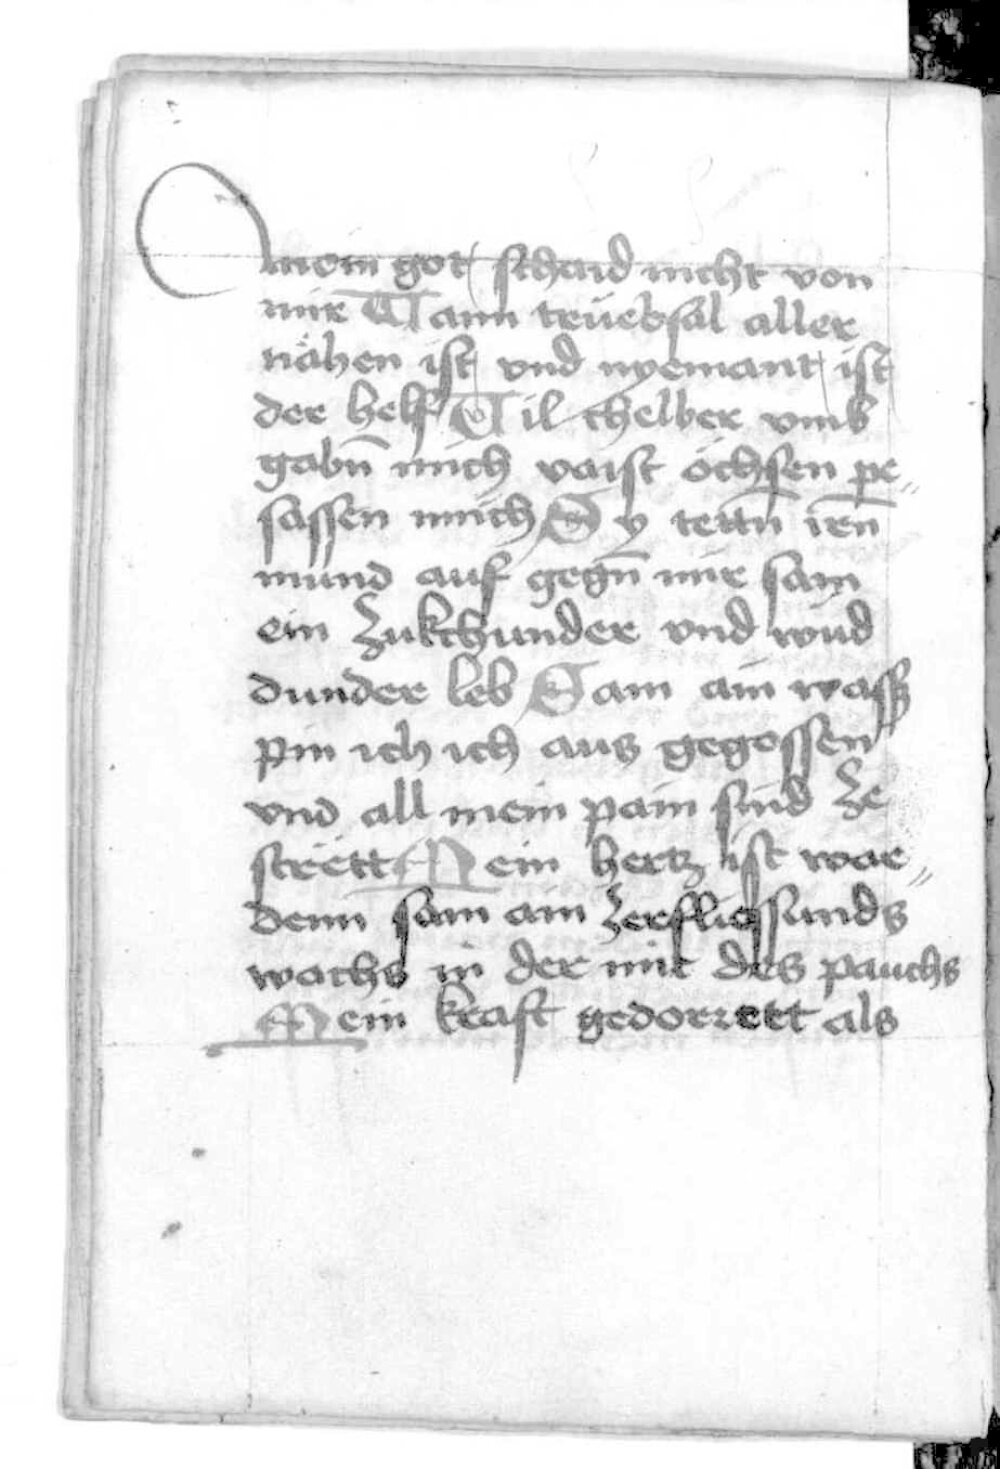 mein got schaid nicht von
mir Wann trüebsal aller
nähen ist vnd nyemant ist
der helf Vil chelber vmb
gabn̄ mich vaist öchsen pe„
sassen mich Sy tettn̄ iren̄
mund auf gegn̄ mir sam
ein Zukchunder vnd wüd
dunder leb Sam ain wass
pin ich ich aus gegossen
vnd all mein pain sind Ze
strett Mein hertz ist wor„
denn sam ain Zerfliessunds
wachs in der mit des pauchs
Mein kraft gedorrett als